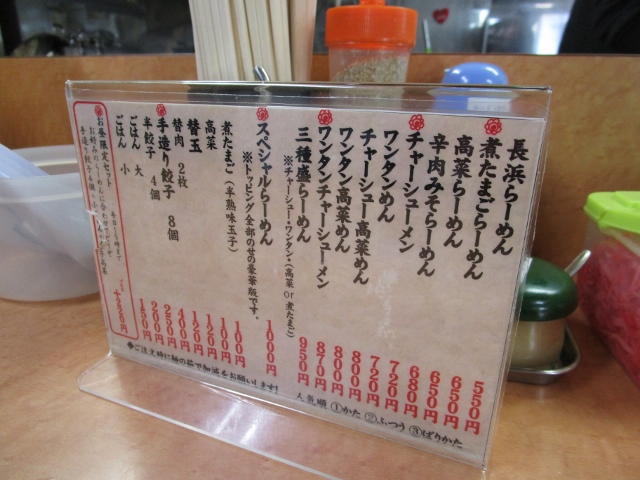 長浜らーめん 550円
煮たまごらーめん 650円
高菜らーめん 650円
辛肉みそらーめん 680円
チャーシューメン 720円
ワンタンめん 720円
チャーシュー高菜めん 800円
ワンタン高菜めん 800円
ワンタンチャーシューメン 870円
三種盛らーめん 950円
※チャーシュー・ワンタン・(高菜 or 煮たまご)
スペシャルらーめん 1000円
※トッピング全部のせの豪華版です。
煮たまご(半熟味玉子) 100円
高菜 100円
替玉 120円
替肉 2枚 120円
手造り餃子 8個 400円
半餃子 4個 250円
ごはん 大 200円
ごはん 小 150円
お昼限定セット
ご注文時に麺の茹で加減をお願いします!
人気順 ①かた ②ふつう ③ばりかた